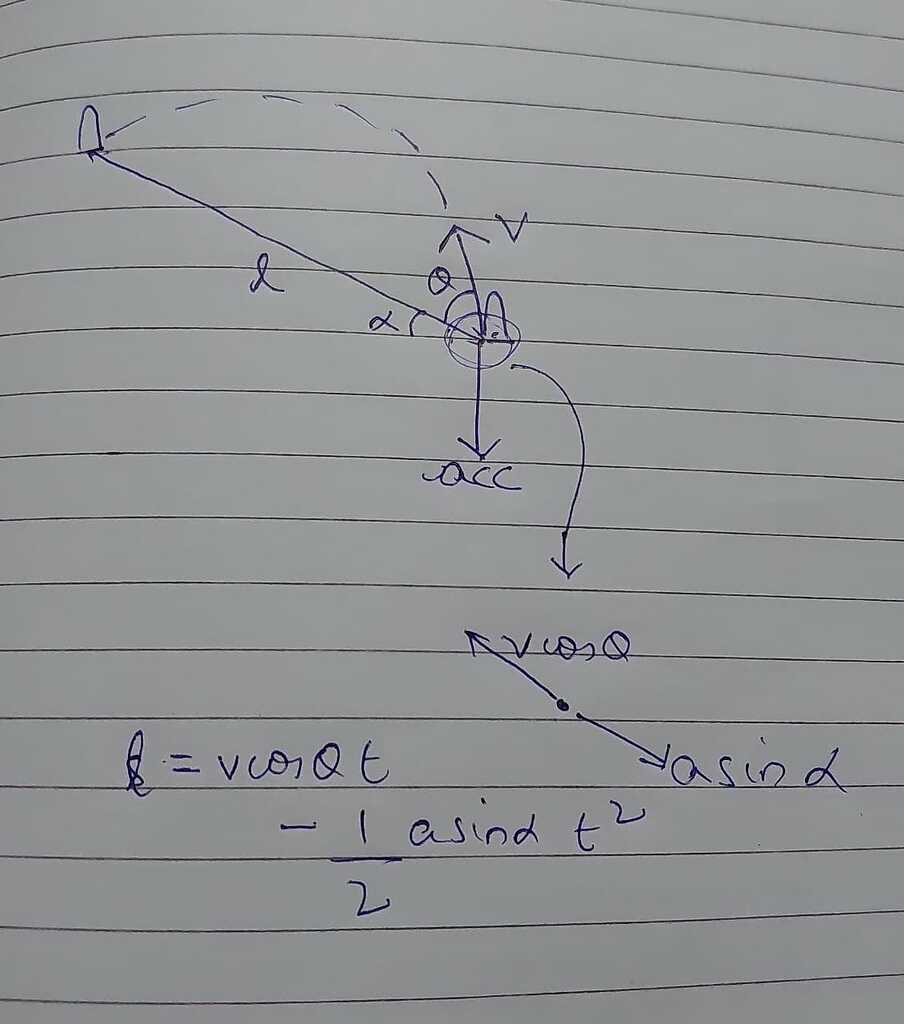 V
θ
l
α
acc
v cosθ
a sin α
l = v cosθ t
- 1/2 a sinα t²